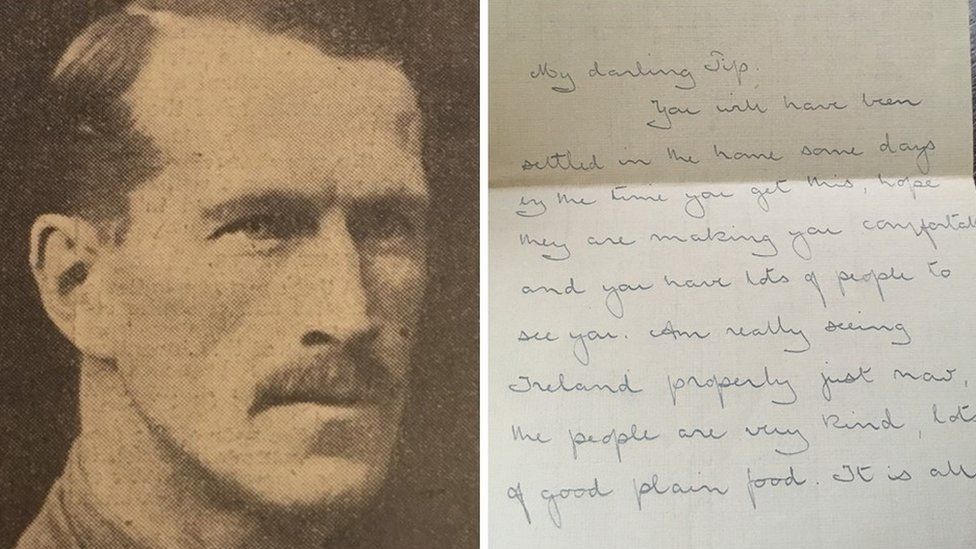 My darling Tip.
You will have been
settled in the home some days
by the time you get this, hope
they are making you comfortab
and you have lots of people to
see you. Am really seeing
Ireland properly just now,
the people are very kind, lots
of good plain food. It is all